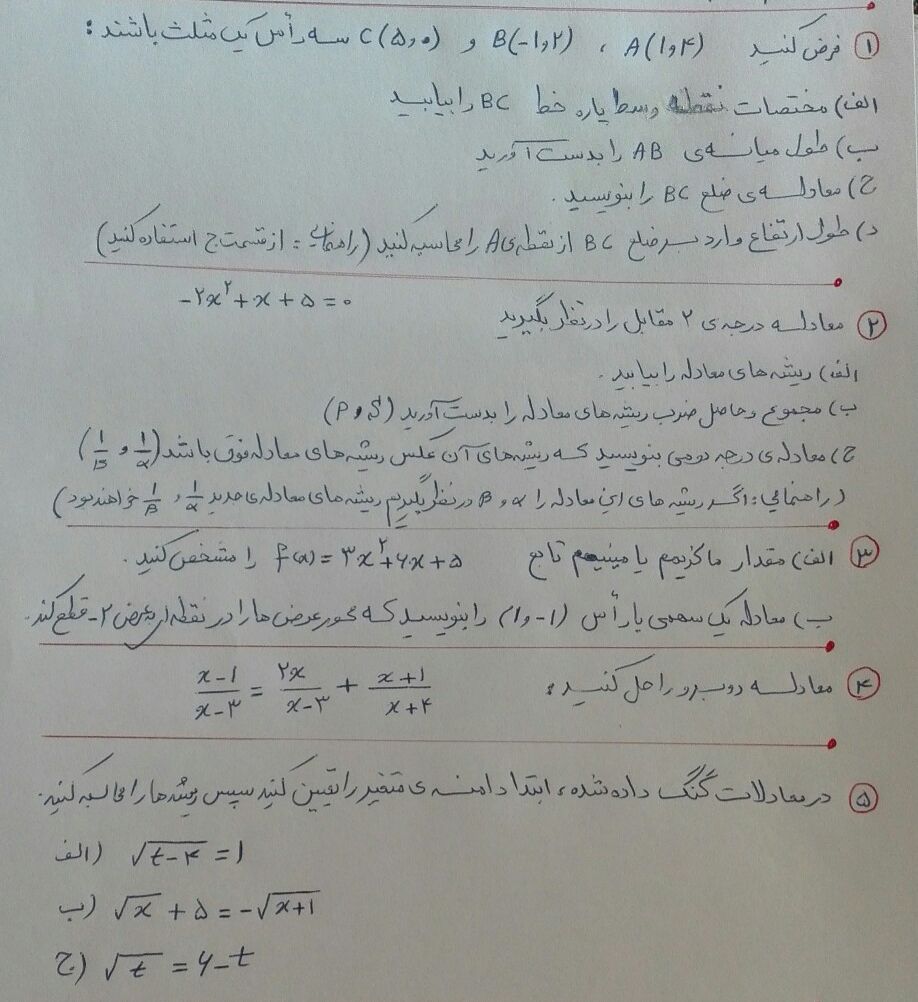 ۱) فرض کنید A(۱,۴) ، B(-۱,۲) و C(۵,۰) سه رأس یک مثلث باشند:
الف) مختصات نقطه وسط پاره خط BC را بیابید
ب) طول میانه‌ی AB را بدست آورید
ج) معادله‌ی ضلع BC را بنویسید.
د) طول ارتفاع وارد بر ضلع BC از نقطه‌ی A را محاسبه کنید (راهنمایی: از قسمت ج استفاده کنید)
۲) معادله درجه‌ی ۲ مقابل را درنظر بگیرید -۲x²+x+۵=۰
الف) ریشه های معادله را بیابید.
ب) مجموع و حاصل ضرب ریشه های معادله را بدست آورید (S و P)
ج) معادله‌ی درجه دومی بنویسید که ریشه‌های آن عکس ریشه های معادله فوق باشد (1/α و 1/β)
(راهنمایی: اگر ریشه های این معادله را α و β در نظر بگیریم ریشه های معادله‌ی جدید 1/α و 1/β خواهند بود)
۳) الف) مقدار ماکزیمم یا مینیمم تابع f(x)=۳x²+۶x+۵ را مشخص کنید.
ب) معادله یک سهمی با رأس (۱,-۱) را بنویسید که محور عرض ها را در نقطه‌ای به عرض ۲- قطع کند.
۴) معادله روبرو را حل کنید: (x-1)/(x-۳) = ۲x/(x-۳) + (x+1)/(x+۴)
۵) در معادلات گنگ داده شده، ابتدا دامنه ی متغیر را تعیین کنید سپس ریشه‌ها را محاسبه کنید.
الف) √(t-۴) = ۱
ب) √x + ۵ = -√(x+1)
ج) √t = ۶-t